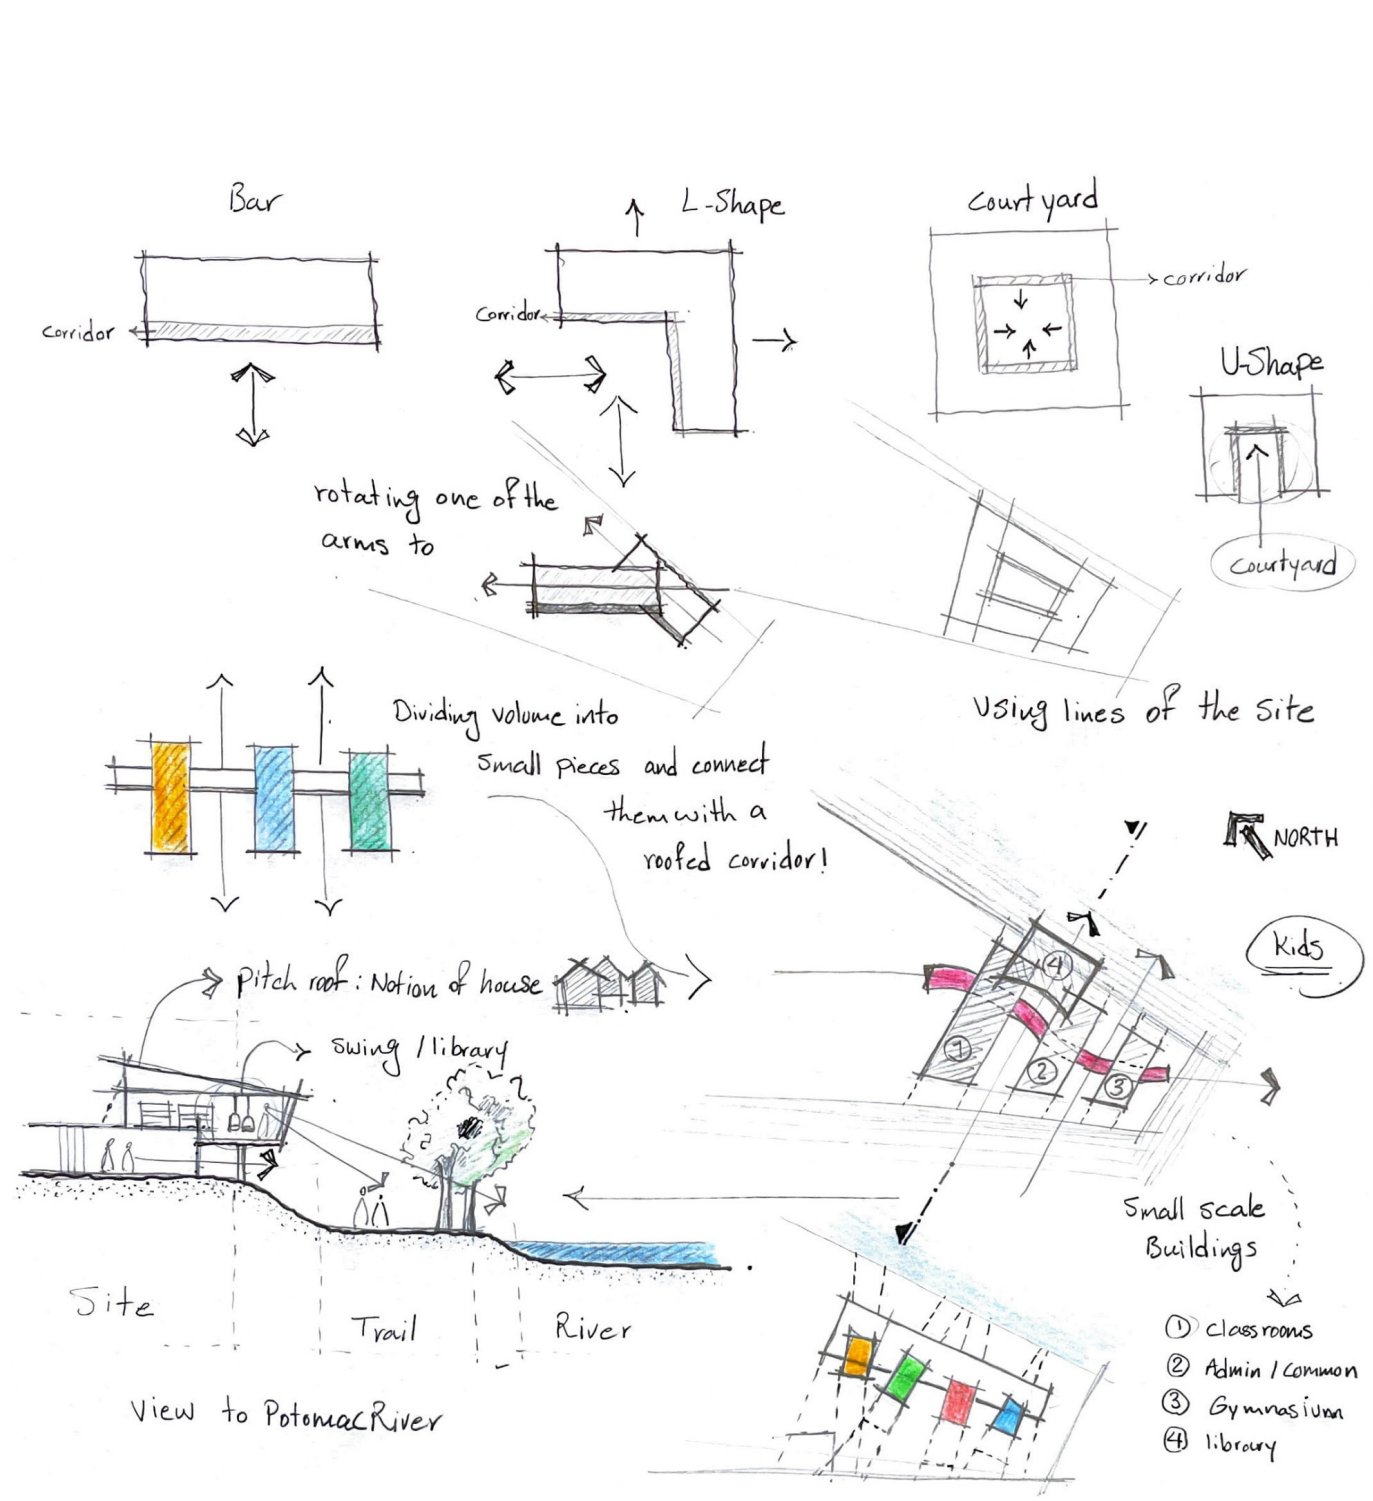 Bar
L-Shape
Courtyard
corridor
Corridor
corridor
U-Shape
Courtyard
rotating one of the
arms to
Using lines of the site
Dividing volume into
small pieces and connect
them with a
roofed corridor!
NORTH
Kids
4
1
2
3
Pitch roof: Notion of house
swing / library
Small scale
Buildings
Site
Trail
River
View to Potomac River
1 Classrooms
2 Admin / Common
3 Gymnasium
4 library